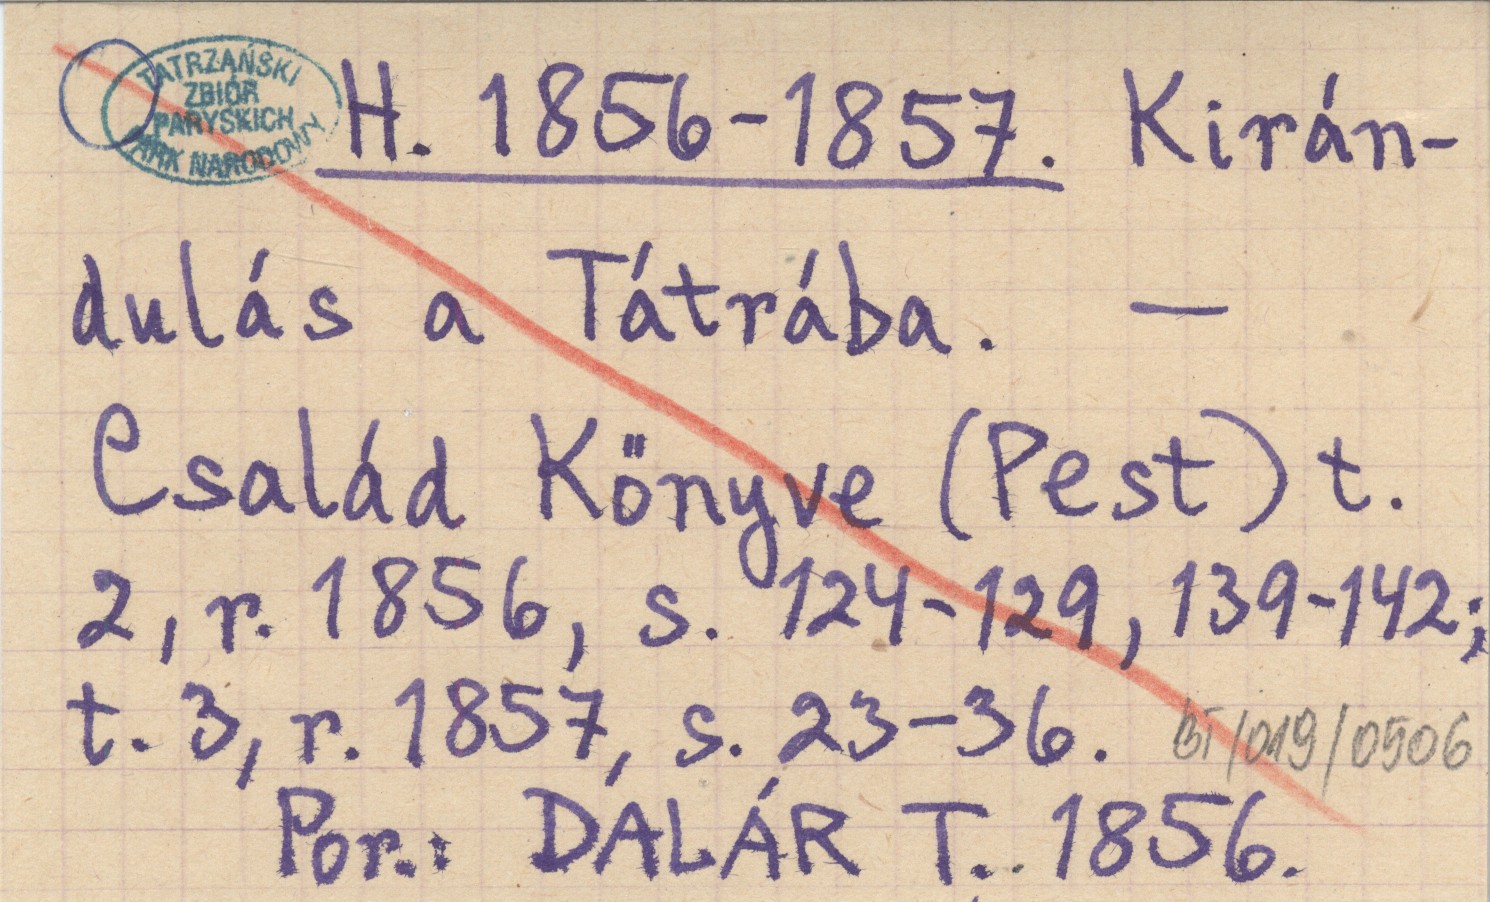 TATRZAŃSKI
ZBIÓR
PARYSKICH
PARK NARODOWY
H. 1856-1857. Kirán-
dulás a Tátrába. —
Család Könyve (Pest) t.
2, r. 1856, s. 124-129, 139-142;
t. 3, r. 1857, s. 23-36.
BT/019/0506
Por.: DALÁR T. 1856.